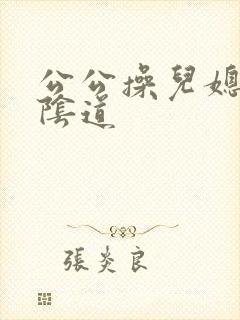 公公操兒媳
陰道
張炎良